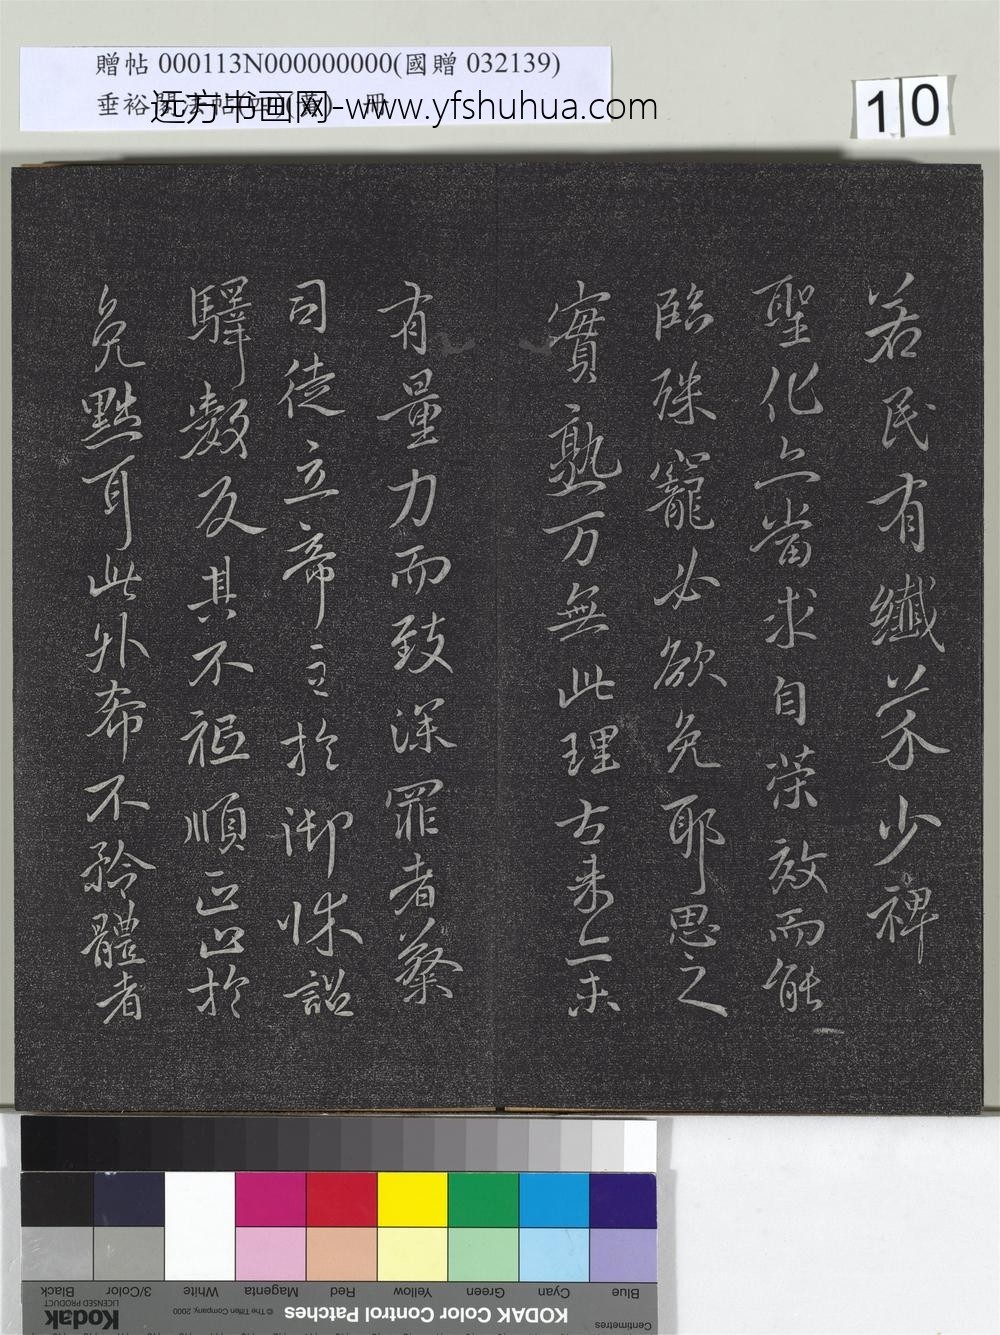 贈帖 000113N000000000(國贈 032139)
垂裕閣法帖
远方书画网-www.yfshuhua.com
冊
10
若民有纖芥少裨
聖化亦當求自榮效而能
臨殊寵必欲免耶思之
實熟万無此理古来亦未
有量力而致深罪者蔡
司徒立帝主於御牀詔
驛數反其不祗順正止於
免黜耳此外希不矜體者
Blue
Cyan
Green
Yellow
Red
Magenta
White
3/Color
Black
Centimetres
KODAK Color Control Patches
© The Tiffen Company, 2000
Kodak
LICENSED PRODUCT